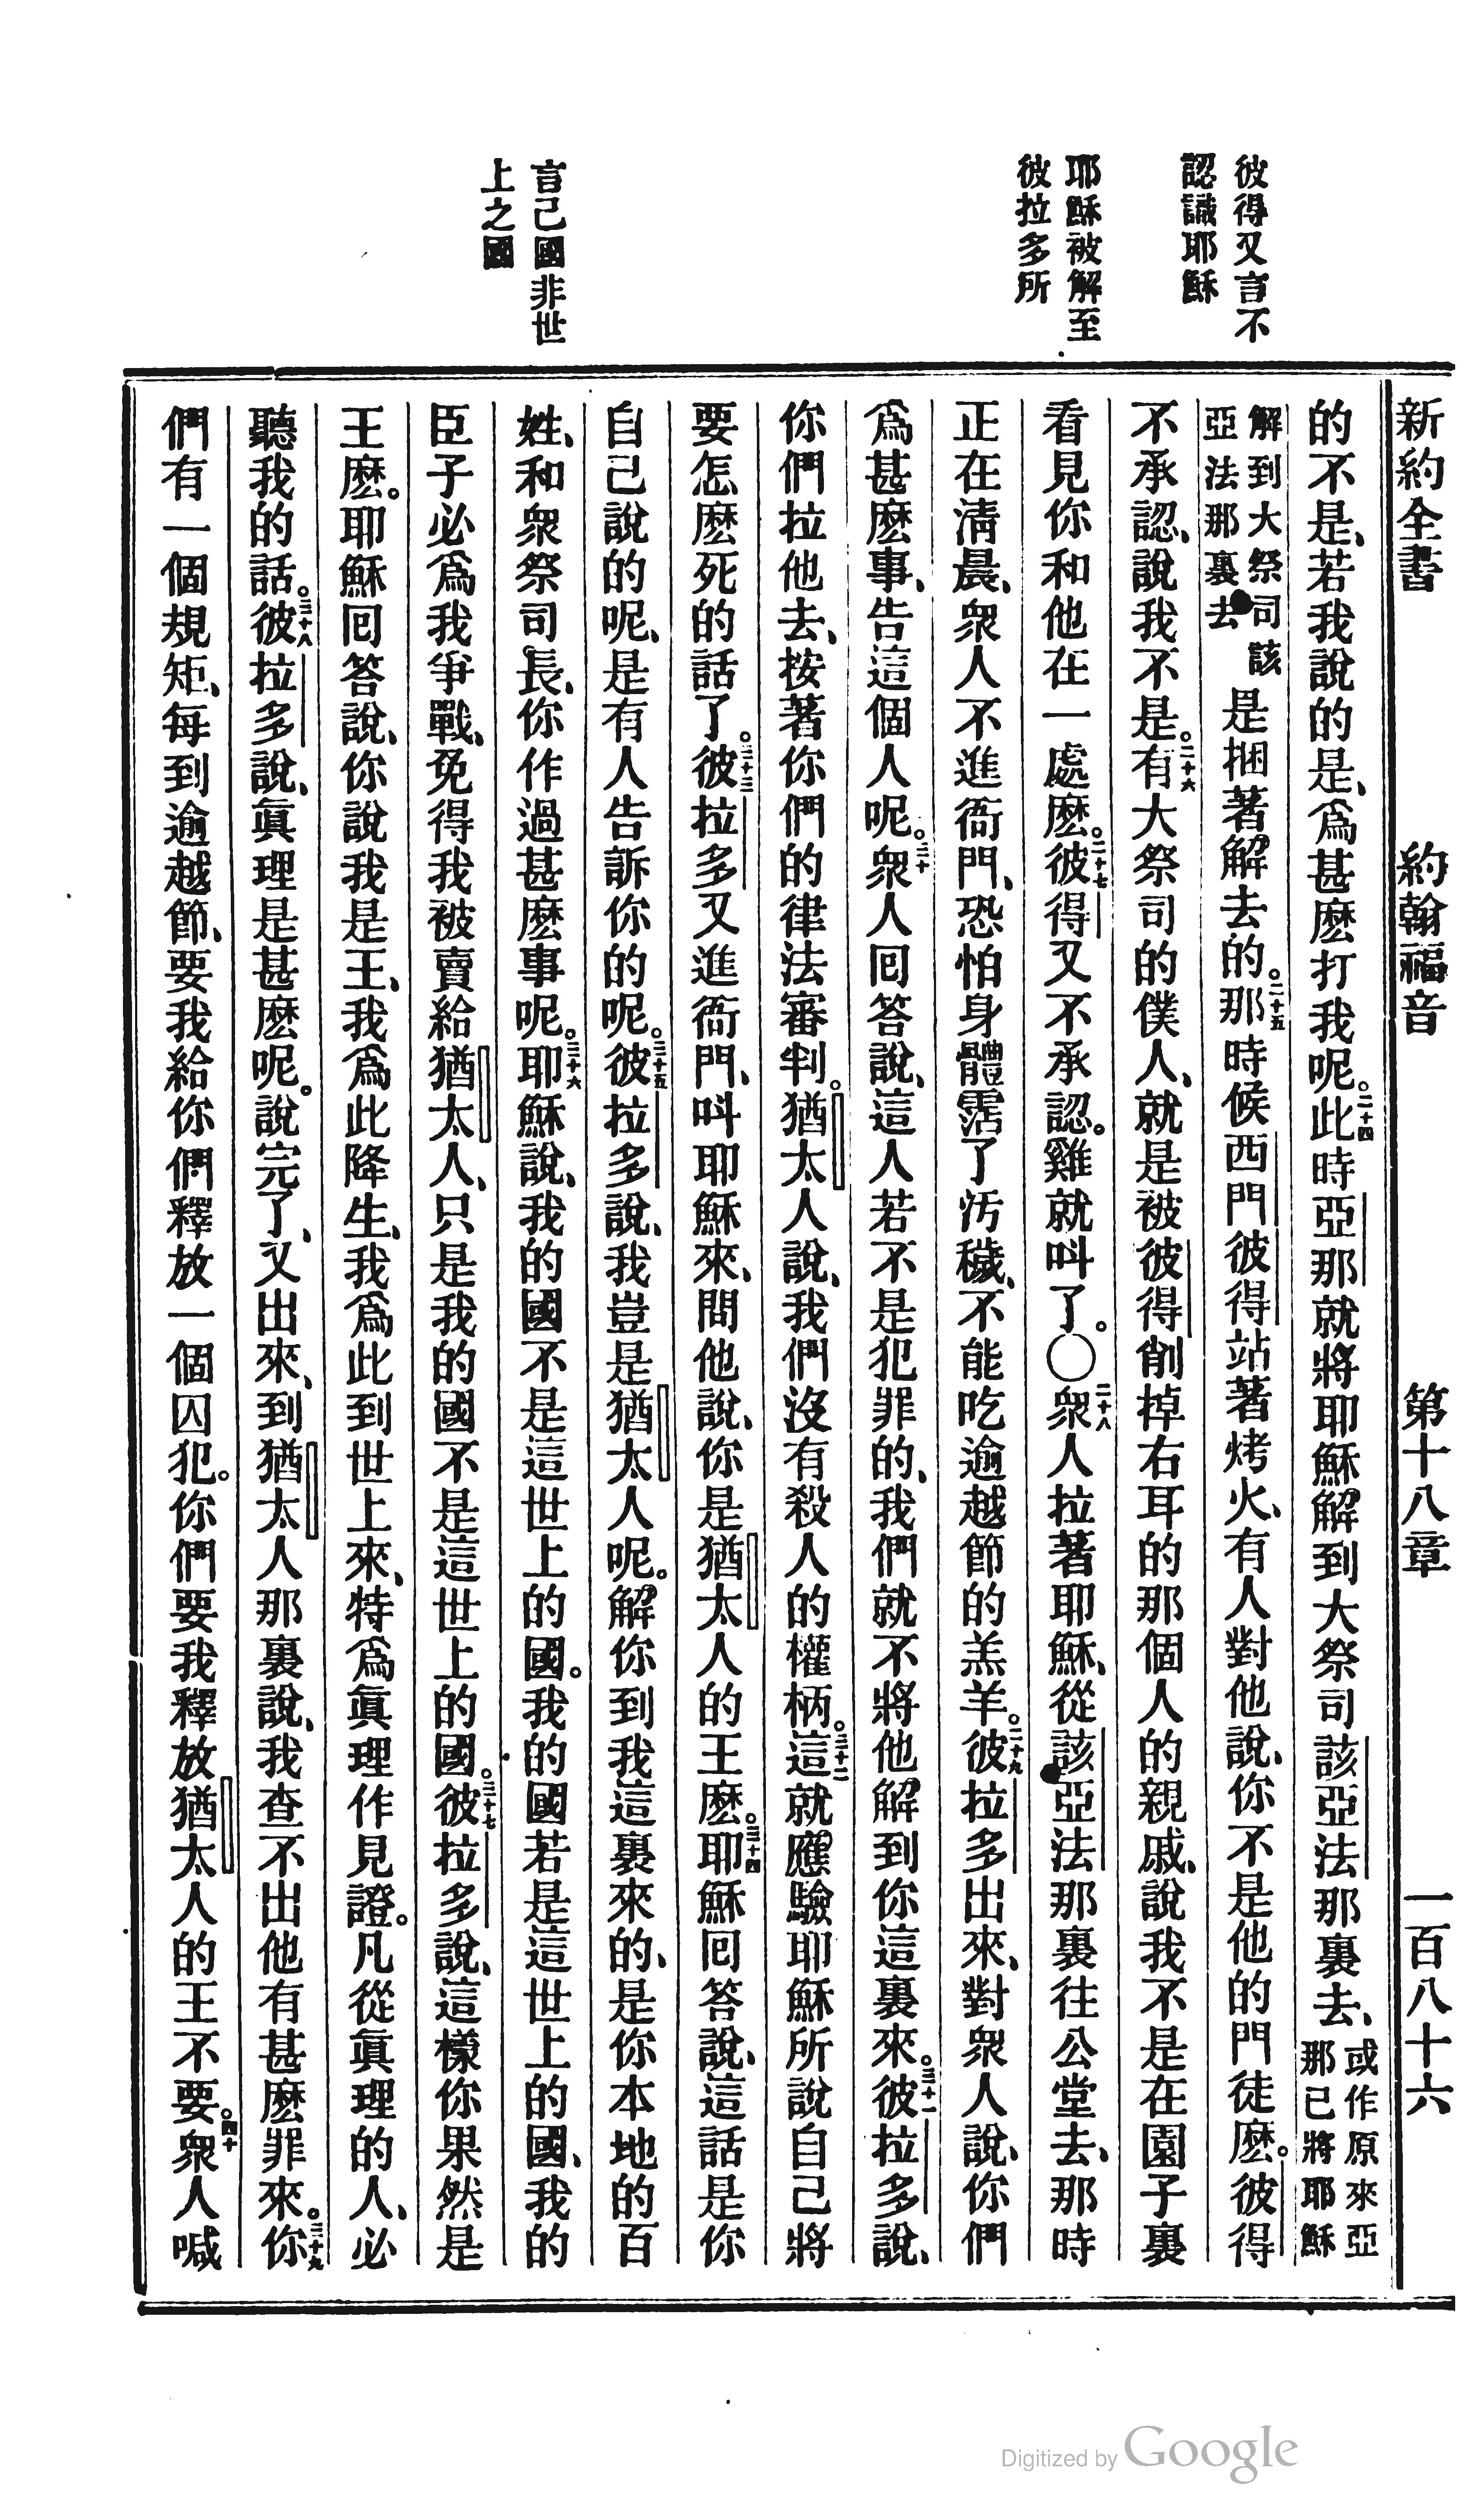 新約全書 約翰福音 第十八章 一百八十六
彼得又言不
認識耶穌
耶穌被解至
彼拉多所
言己國非世
上之國
的不是、若我說的是、爲甚麽打我呢。二十四此時亞那就將耶穌解到大祭司該亞法那裏去、或作原來亞那已將耶穌
解到大祭司該亞法那裏去是捆著解去的。二十五那時候西門彼得站著烤火、有人對他說、你不是他的門徒麽。彼得
不承認、說我不是。二十六有大祭司的僕人、就是被彼得削掉右耳的那個人的親戚、說我不是在園子裏
看見你和他在一處麽。二十七彼得又不承認。雞就呌了。○二十八衆人拉著耶穌、從該亞法那裏往公堂去、那時
正在淸晨、衆人不進衙門、恐怕身體霑了汚穢、不能吃逾越節的羔羊。二十九彼拉多出來、對衆人說、你們
爲甚麽事、告這個人呢。三十衆人回答說、這人若不是犯罪的、我們就不將他解到你這裏來。三十一彼拉多說、
你們拉他去、按著你們的律法審判。猶太人說、我們沒有殺人的權柄。三十二這就應驗耶穌所說自己將
要怎麽死的話了。三十三彼拉多又進衙門、呌耶穌來、問他說、你是猶太人的王麽。三十四耶穌回答說、這話是你
自己說的呢、是有人告訴你的呢。三十五彼拉多說、我豈是猶太人呢。解你到我這裏來的、是你本地的百
姓、和衆祭司長、你作過甚麽事呢。三十六耶穌說、我的國不是這世上的國。我的國若是這世上的國、我的
臣子必爲我爭戰、免得我被賣給猶太人、只是我的國不是這世上的國。三十七彼拉多說、這樣你果然是
王麽。耶穌回答說、你說我是王、我爲此降生、我爲此到世上來、特爲眞理作見證。凡從眞理的人、必
聽我的話。三十八彼拉多說、眞理是甚麽呢。說完了、又出來、到猶太人那裏說、我查不出他有甚麽罪來。三十九你
們有一個規矩、每到逾越節、要我給你們釋放一個囚犯。你們要我釋放猶太人的王不要。四十衆人喊
Digitized by Google